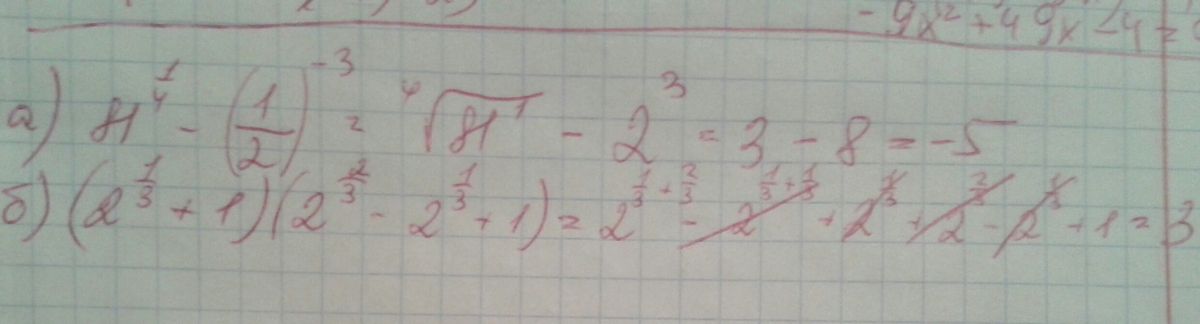 - 9x² + 49x - 4 =
а) 81^(1/4) - (1/2)^(-3) = ⁴√81¹ - 2³ = 3 - 8 = -5
б) (2^(1/3) + 1)(2^(2/3) - 2^(1/3) + 1) = 2^(1/3 + 2/3) - 2^(1/3 + 1/3) + 2^(1/3) + 2^(2/3) - 2^(1/3) + 1 = 3